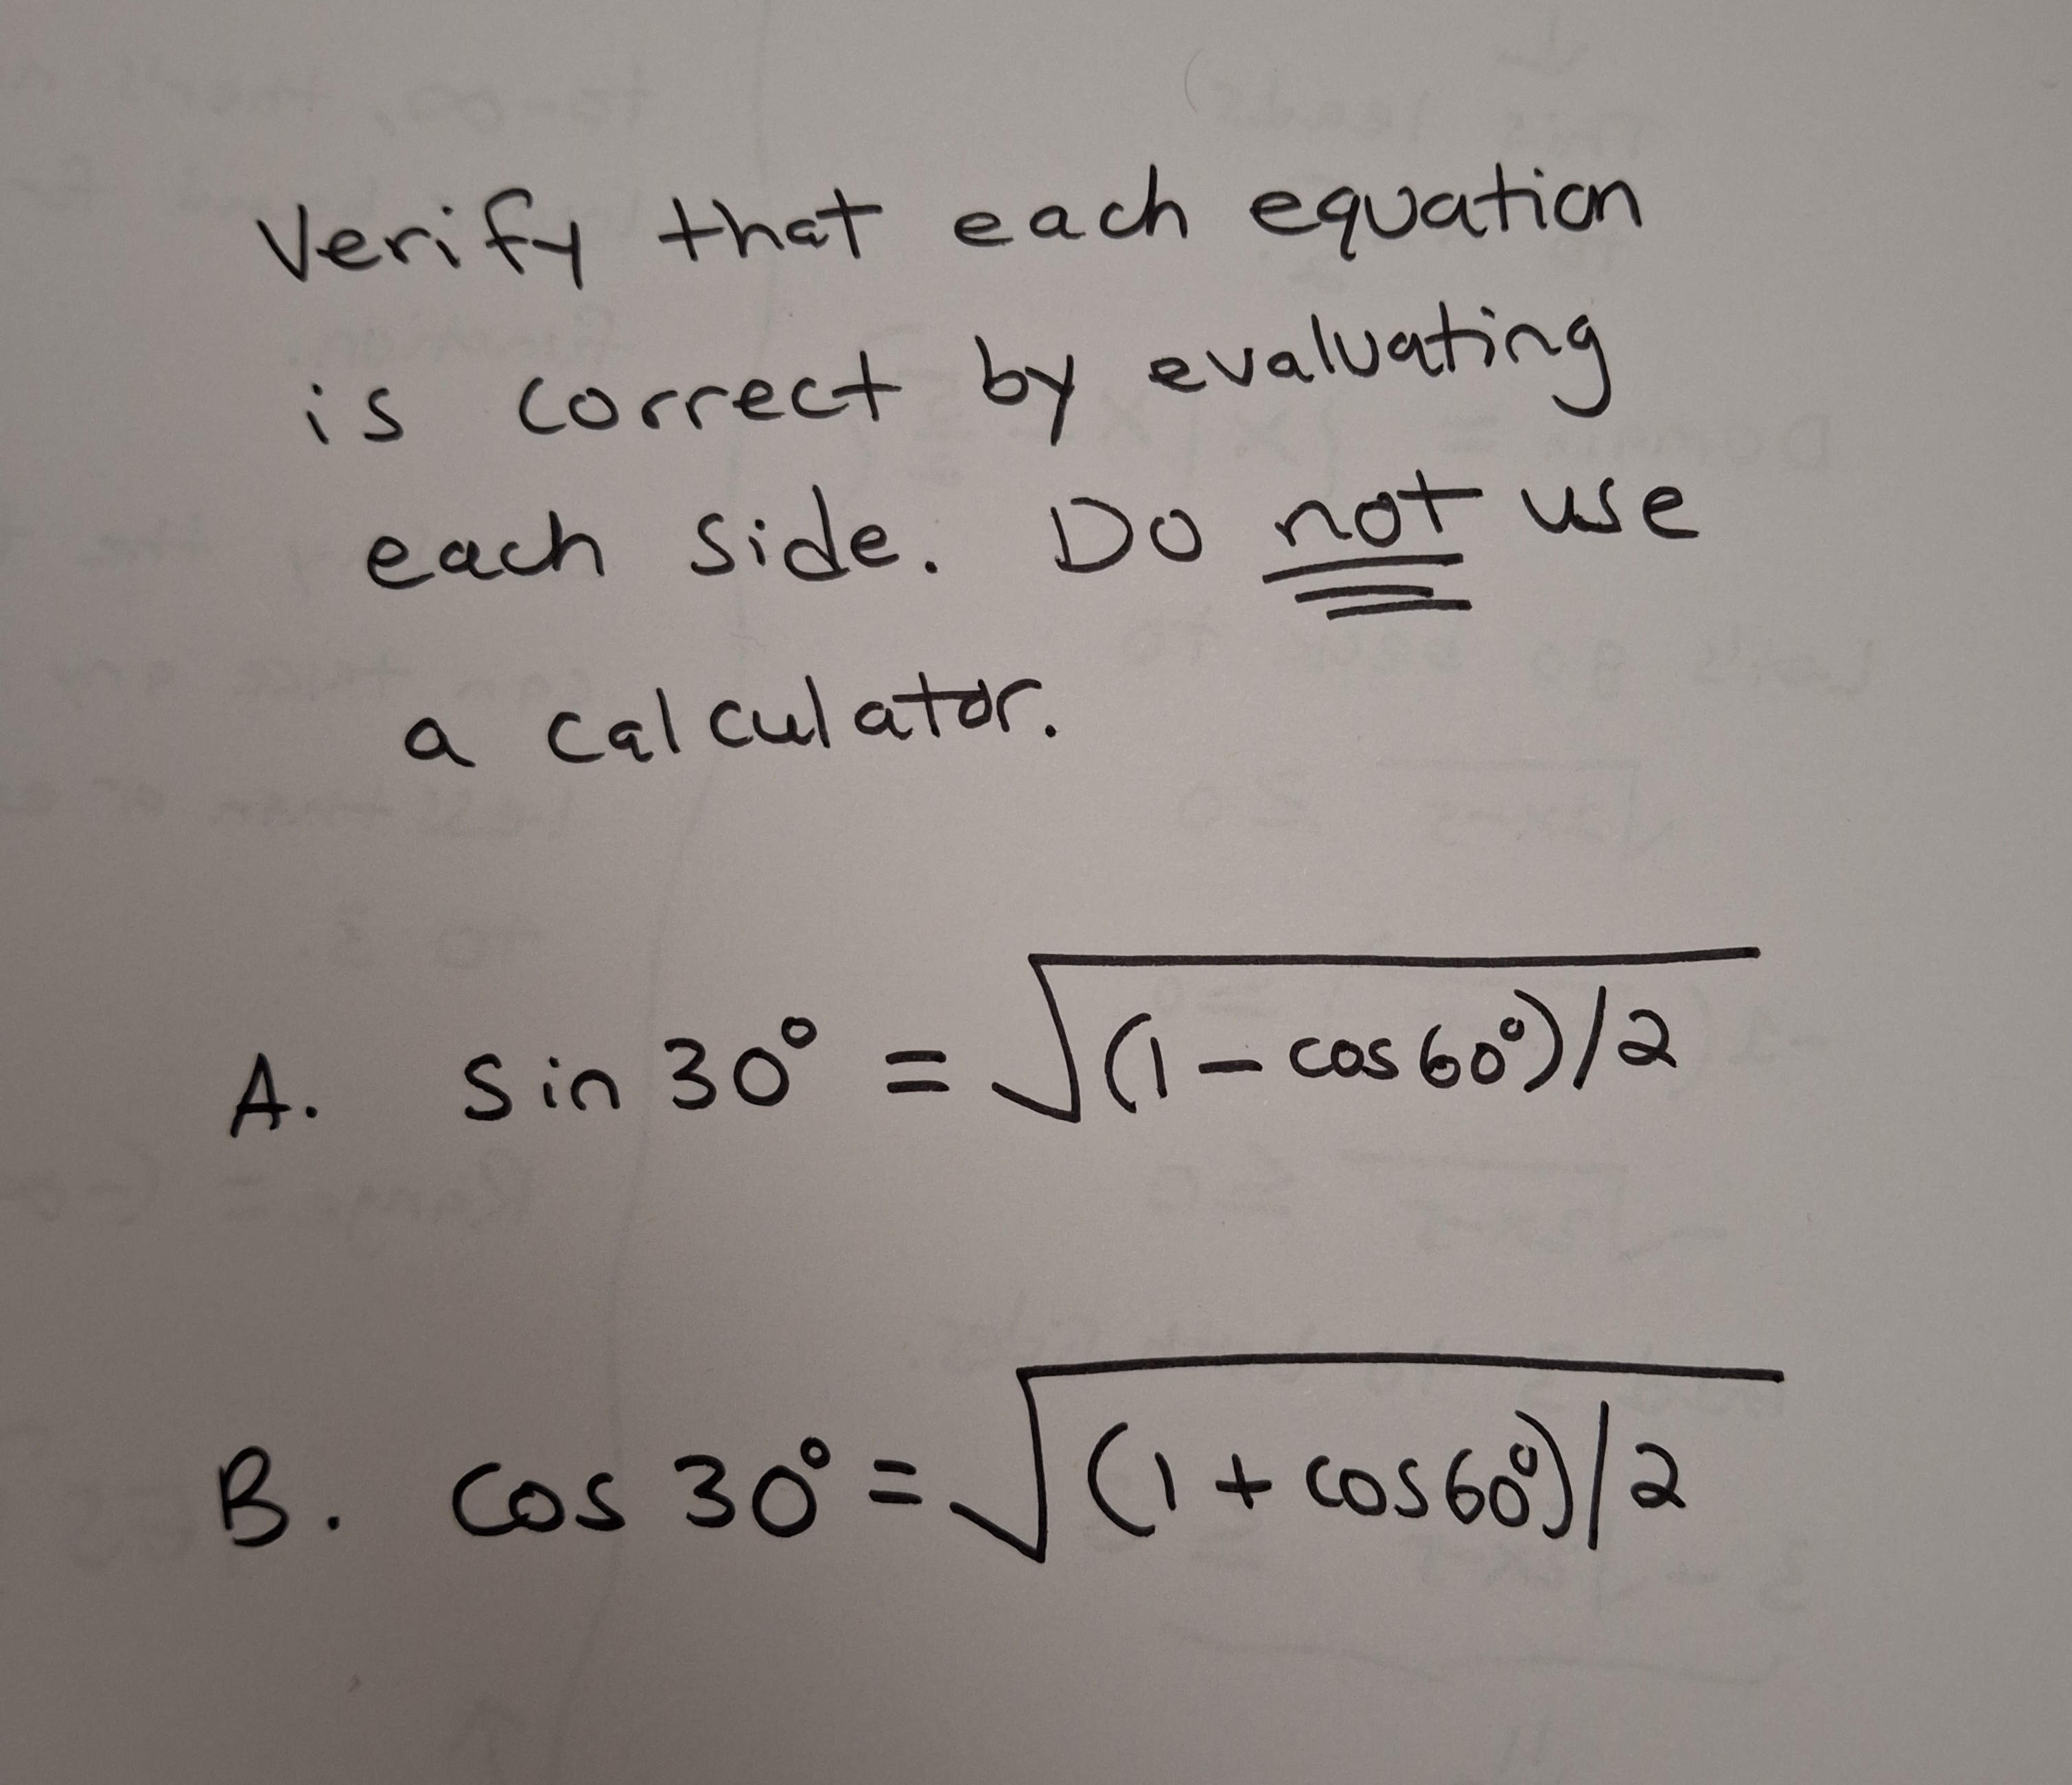 Verify that each equation
is correct by evaluating
each side. Do not use
a calculator.
A. sin 30° = √(1 - cos 60°)/2
B. cos 30° = √(1 + cos 60°)/2